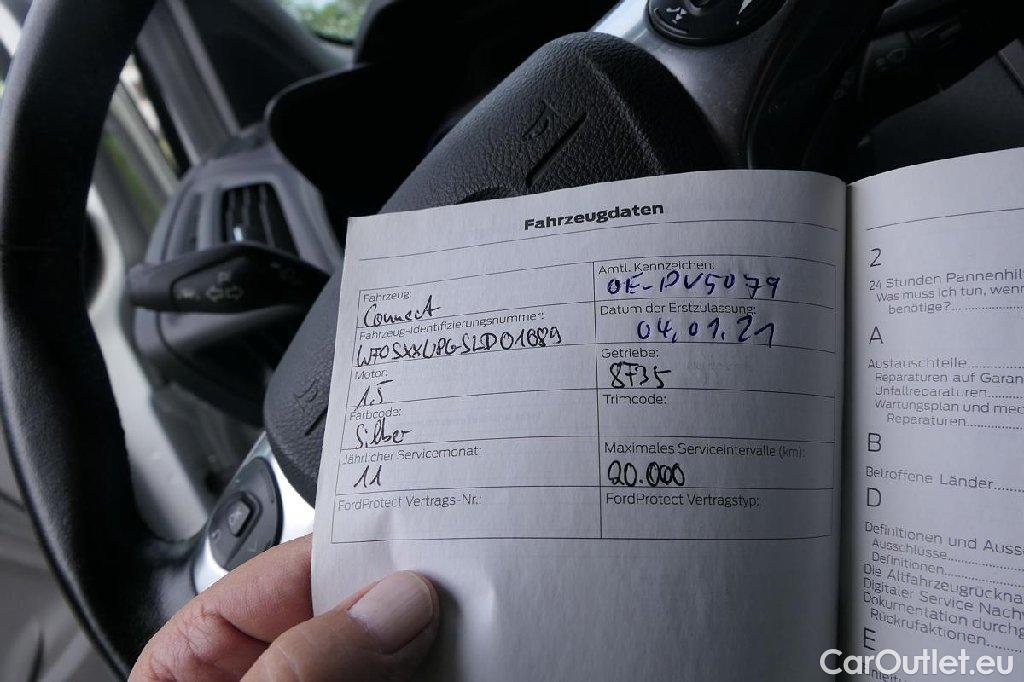 Fahrzeugdaten
Fahrzeug:
Connect
Amtl. Kennzeichen:
OE-PV5079
Fahrzeug-Identifizierungsnummer:
Datum der Erstzulassung:
04.01.21
Motor:
1.5
Getriebe:
8F35
Farbcode:
Silber
Trimcode:
Jährlicher Servicemonat:
11
Maximales Serviceintervalle (km):
20.000
FordProtect Vertrags-Nr.:
FordProtect Vertragstyp:
2
24 Stunden Pannenhil
Was muss ich tun, wenn
benötige?
A
Austauschteile
Reparaturen auf Garan
Unfallreparaturen
Wartungsplan und mec
Reparaturen
B
Betroffene Länder
D
Definitionen und Auss
Ausschlüsse
Definitionen
Die Altfahrzeugrückna
Digitaler Service Nachw
Dokumentation durchg
Rückrufaktionen
E
CarOutlet.eu